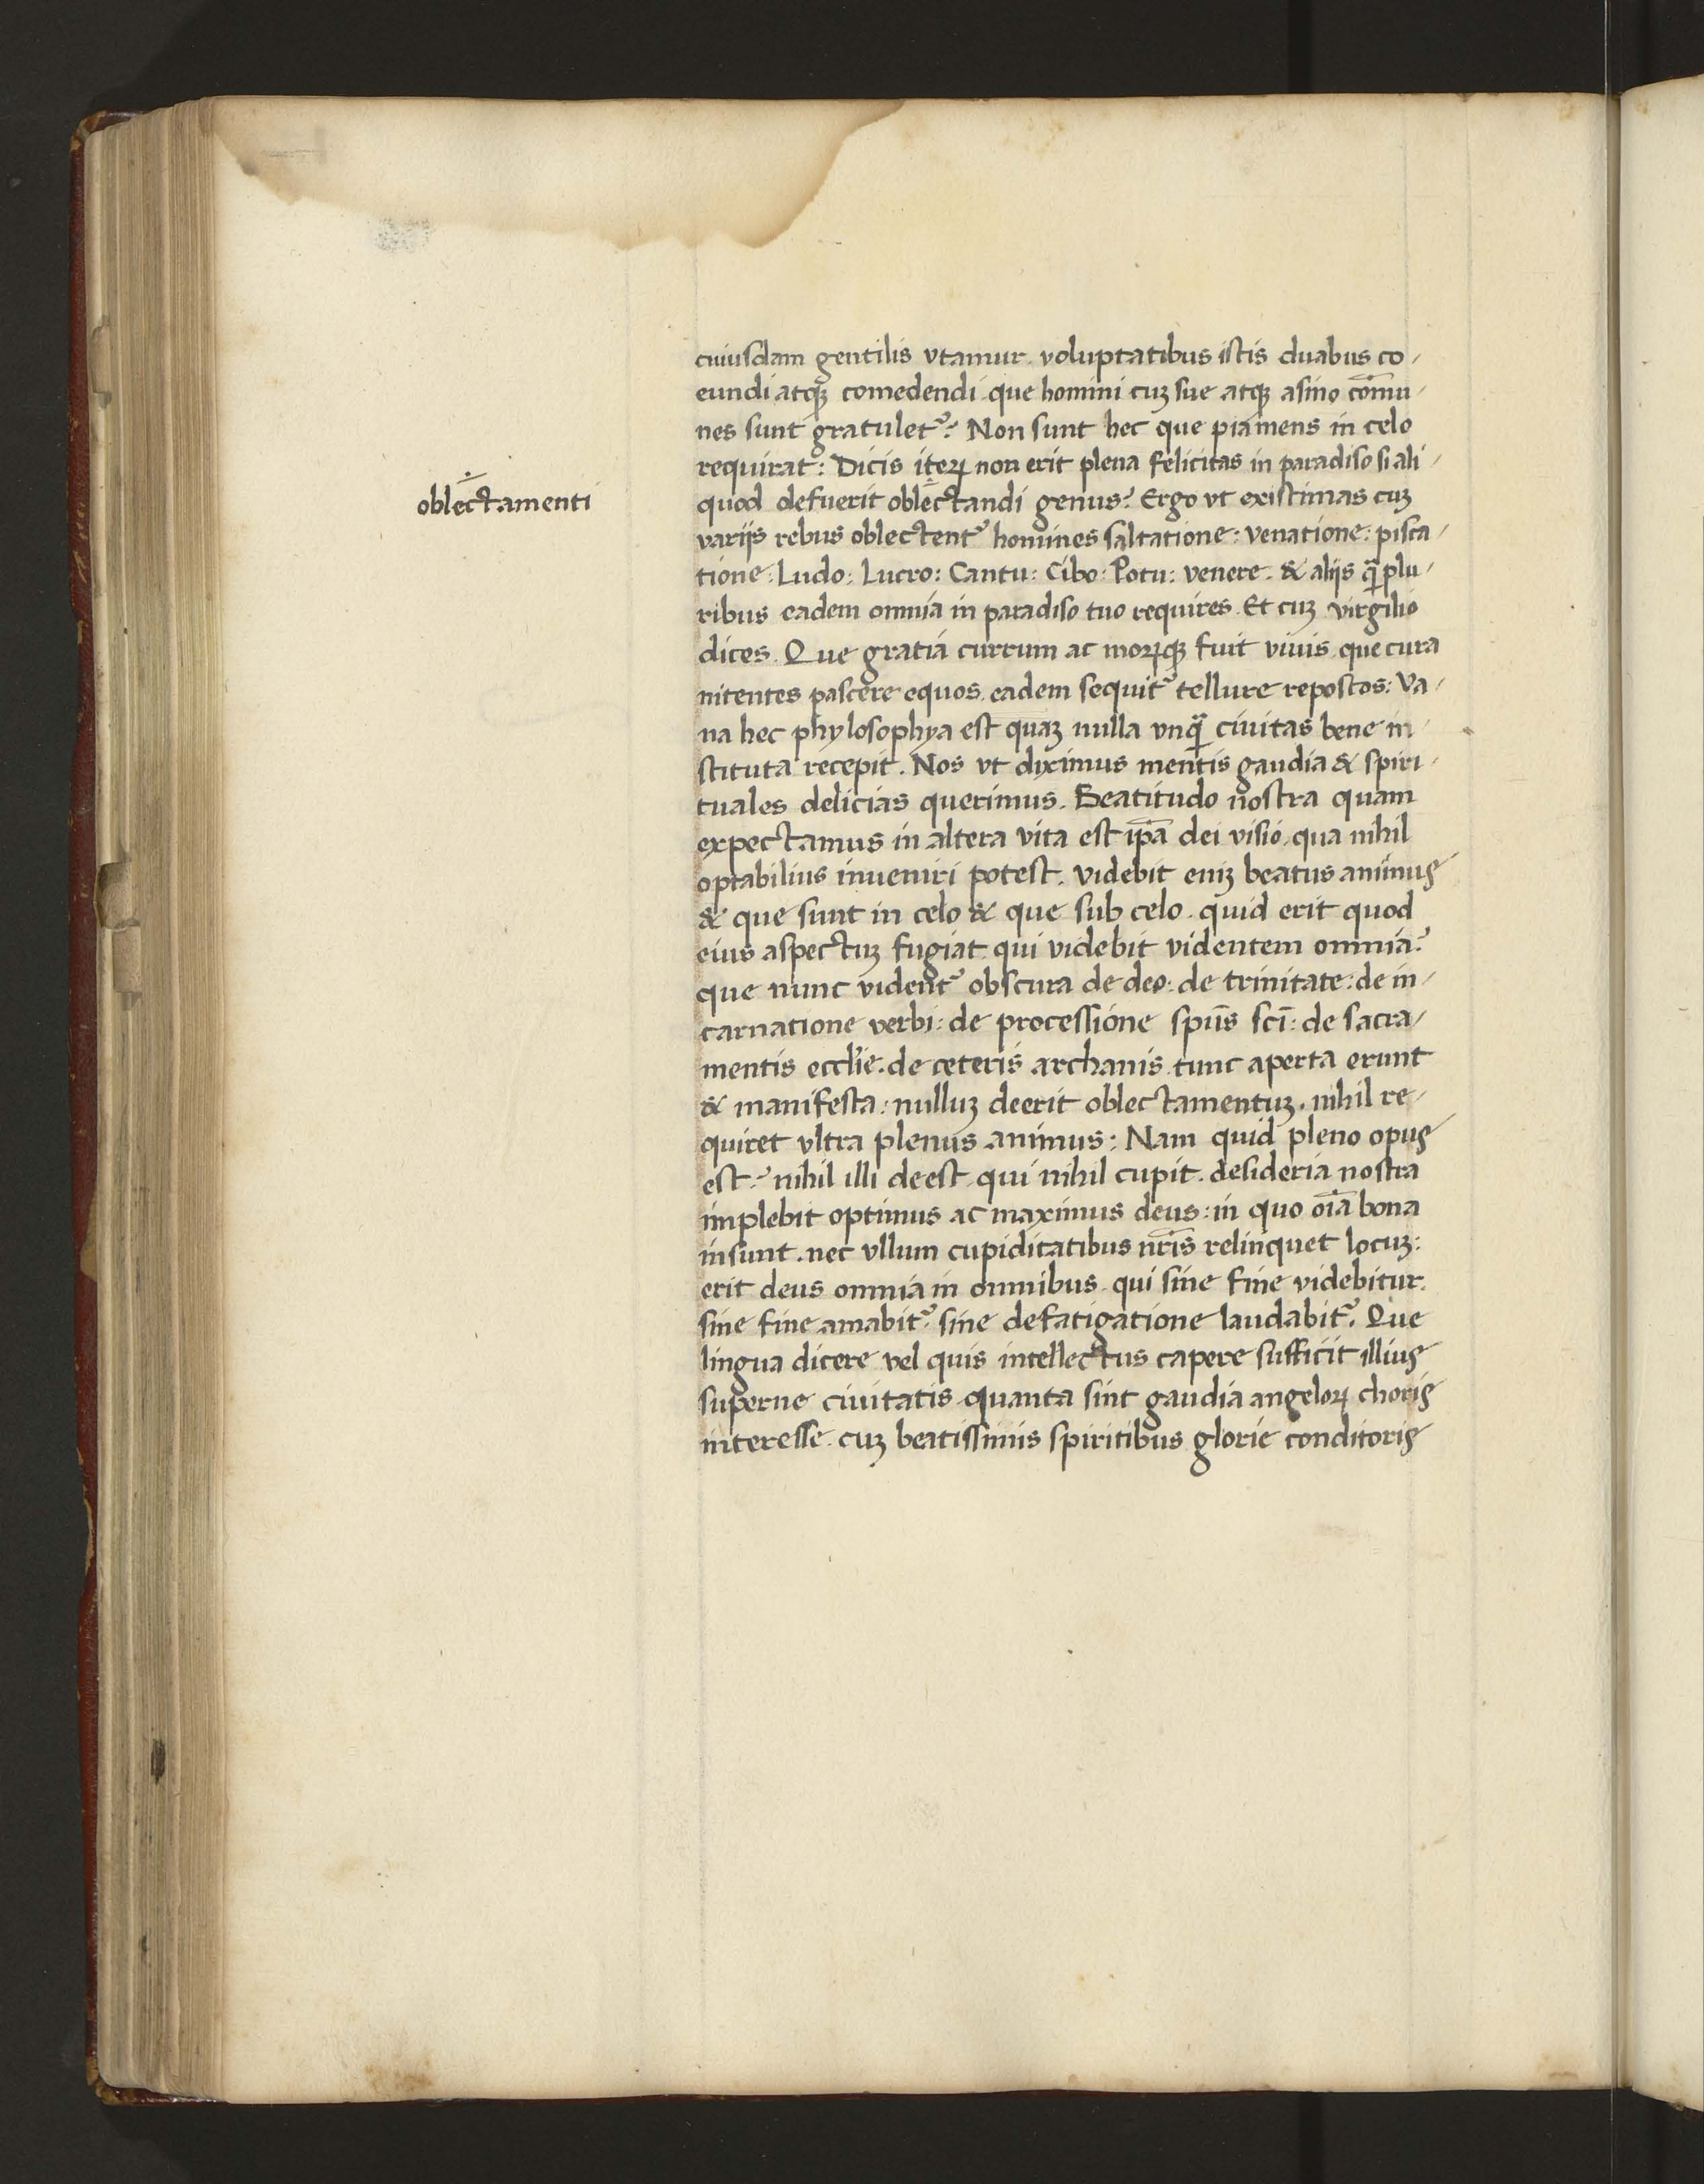 cuiusdam gentilis vtamur. voluptatibus istis duabus co-
eundi atqꝫ comedendi que homini cuꝫ sue atqꝫ asino com̄u-
nes sunt gratulet᷑? Non sunt hec que pia mens in celo
requirat: Dicis iteꝝ non erit plena felicitas in paradiso si ali-
oblectamenti
quod defuerit oblectandi genus? Ergo vt existimas cuꝫ
variis rebus oblectent᷑ homines saltatione: venatione: pisca-
tione: Ludo: Lucro: Cantu: Cibo: Potu: venere. & aliis q̄ꝫ plu-
ribus eadem omnia in paradiso tuo requires. Et cuꝫ virgilio
dices. Que gratia currum ac moꝝqꝫ fuit viuis. que cura
nitentes pascere equos. eadem sequit᷑ tellure repostos: Va-
na hec phylosophya est quaꝫ nulla vnq̄ꝫ ciuitas bene in-
stituta recepit. Nos vt diximus mentis gaudia & spiri-
tuales delicias querimus. Beatitudo nostra quam
expectamus in altera vita est ip̄a dei visio. qua nihil
optabilius inueniri potest. videbit eniꝫ beatus animus
& que sunt in celo & que sub celo. quid erit quod
eius aspectuꝫ fugiat qui videbit videntem omnia?
que nunc vident᷑ obscura de deo: de trinitate: de in-
carnatione verbi: de processione sp̄us sc̄i: de sacra-
mentis eccl̄ie. de ceteris archanis tunc aperta erunt
& manifesta: nulluꝫ deerit oblectamentuꝫ. nihil re-
quiret vltra plenus animus: Nam quid pleno opus
est? nihil illi deest qui nihil cupit. desideria nostra
implebit optimus ac maximus deus: in quo oīa bona
insunt. nec vllum cupiditatibus nr̄is relinquet locuꝫ:
erit deus omnia in omnibus. qui sine fine videbitur.
sine fine amabit᷑. sine defatigatione laudabit᷑. Que
lingua dicere vel quis intellectus capere sufficit illius
superne ciuitatis quanta sint gaudia angeloꝝ choris
interesse. cuꝫ beatissimis spiritibus glorie conditoris